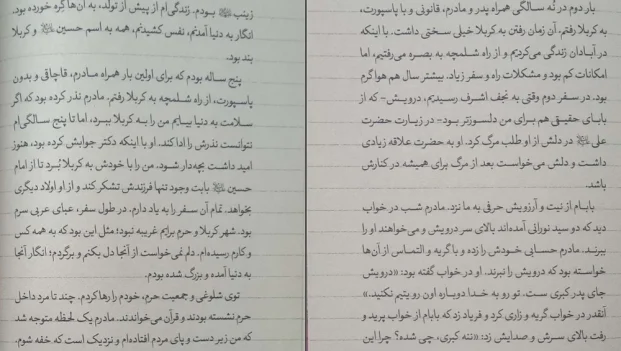 زینب ﷺ بودم. زندگی‌ام از پیش از تولد، به آن‌ها گره خورده بود.
انگار به دنیا آمدنم، نفس کشیدنم، همه به اسم حسین ﷺ و کربلا
بند بود.
پنج ساله بودم که برای اولین بار همراه مادرم، قاچاقی و بدون
پاسپورت، از راه شلمچه به کربلا رفتم. مادرم نذر کرده بود که اگر
سلامت به دنیا بیایم من را به کربلا ببرد، اما تا پنج سالگی‌ام
نتوانست نذرش را ادا کند. او با اینکه دکتر جوابش کرده بود، هنوز
امید داشت بچه‌دار شود. من را با خودش به کربلا بُرد تا از امام
حسین ﷺ بابت وجود تنها فرزندش تشکر کند و از او اولاد دیگری
بخواهد. تمام آن سفر را به یاد دارم. در طول سفر، عبای عربی سرم
بود. شهر کربلا و حرم برایم غریبه نبود؛ مثل این بود که به همه کس
و کارم رسیده‌ام. دلم نمی‌خواست از آنجا دل بکنم و برگردم؛ انگار آنجا
به دنیا آمده و بزرگ شده بودم.
توی شلوغی و جمعیت حرم، خودم را رها کردم. چند تا مرد داخل
حرم نشسته بودند و قرآن می‌خواندند. مادرم یک لحظه متوجه شد
که من زیر دست و پای مردم افتاده‌ام و نزدیک است که خفه شوم.
بار دوم در نُه سالگی همراه پدر و مادرم، قانونی و با پاسپورت،
به کربلا رفتم. آن زمان رفتن به کربلا خیلی سختی داشت. با اینکه
در آبادان زندگی می‌کردیم و از راه شلمچه به بصره می‌رفتیم، اما
امکانات کم بود و مشکلات راه و سفر زیاد. بیشتر سال هم هوا گرم
بود. در سفر دوم وقتی به نجف اشرف رسیدیم، درویش- که از
بابای حقیقی هم برای من دلسوزتر بود- در زیارت حضرت
علی ﷺ در دلش از او طلب مرگ کرد. او به حضرت علاقه زیادی
داشت و دلش می‌خواست بعد از مرگ برای همیشه در کنارش
باشد.
بابام از نیت و آرزویش حرفی به ما نزد. مادرم شب در خواب
دید که دو سید نورانی آمده‌اند بالای سر درویش و می‌خواهند او را
ببرند. مادرم حسابی خودش را زده و با گریه و التماس از آن‌ها
خواسته بود که درویش را نبرند. او در خواب گفته بود: «درویش
جای پدر کبری ست. تو رو به خدا دوباره اون رو یتیم نکنید.»
آنقدر در خواب گریه و زاری کرد و فریاد زد که بابام از خواب پرید و
رفت بالای سرش و صدایش زد: «ننه کبری، چی شده؟ چرا این